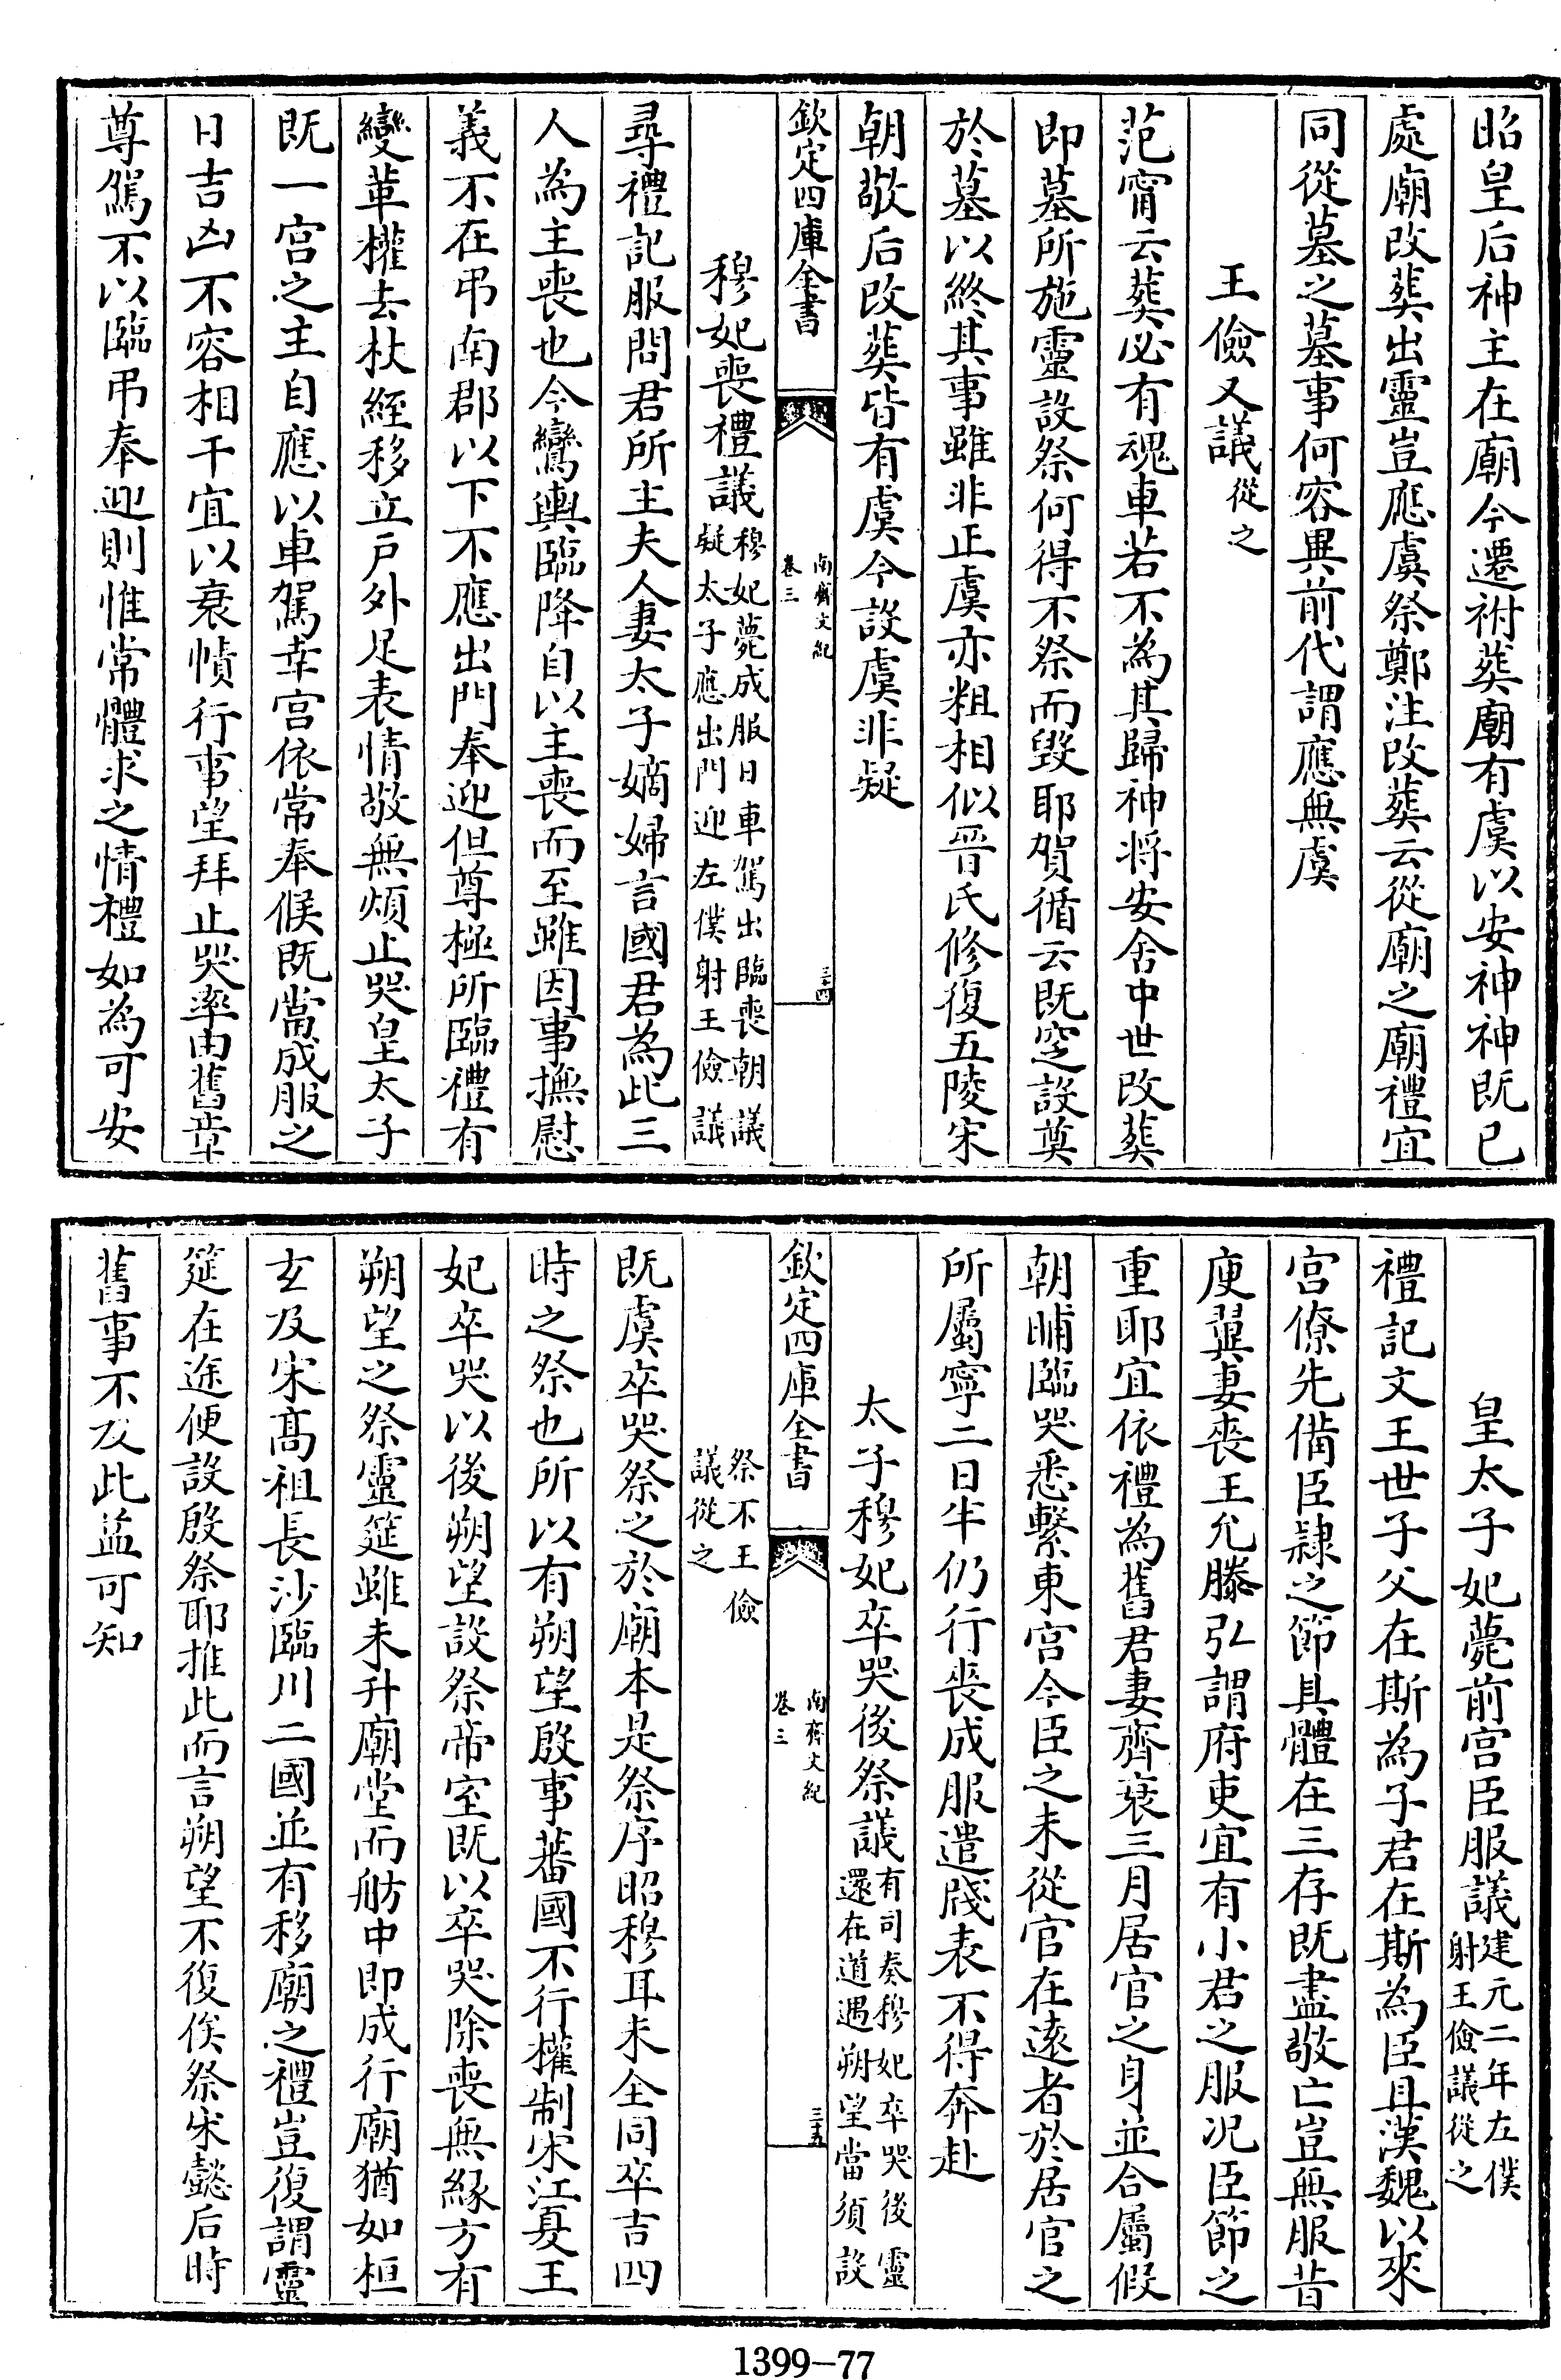 昭皇后神主在廟今遷祔葬廟有虞以安神神既已
處廟改葬出靈豈應虞祭鄭注改葬云從廟之廟禮宜
同從墓之墓事何容異前代謂應無虞
王儉又議從之
范甯云葬必有魂車若不為其歸神將安舍中世改葬
即墓所施靈設祭何得不祭而毀耶賀循云既窆設奠
於墓以終其事雖非正虞亦粗相似晉氏修復五陵宋
朝敬后改葬皆有虞今設虞非疑
欽定四庫全書
南齊文紀
卷三
三十四
穆妃喪禮議穆妃薨成服日車駕出臨喪朝議
疑太子應出門迎左僕射王儉議
尋禮記服問君所主夫人妻太子嫡婦言國君為此三
人為主喪也今鸞輿臨降自以主喪而至雖因事撫慰
義不在弔南郡以下不應出門奉迎但尊極所臨禮有
變革權去杖絰移立戶外足表情敬無煩止哭皇太子
既一宮之主自應以車駕幸宮依常奉候既當成服之
日吉凶不容相干宜以衰幘行事望拜止哭率由舊章
尊駕不以臨弔奉迎則惟常體求之情禮如為可安
皇太子妃薨前宮臣服議建元二年左僕
射王儉議從之
禮記文王世子父在斯為子君在斯為臣且漢魏以來
宮僚先備臣隷之節具體在三存既盡敬亡豈無服昔
庾翼妻喪王允滕弘謂府吏宜有小君之服況臣節之
重耶宜依禮為舊君妻齊衰三月居官之身並合屬假
朝晡臨哭悉繫東宮今臣之未從官在遠者於居官之
所屬寧二日半仍行喪成服遣牋表不得奔赴
太子穆妃卒哭後祭議有司奏穆妃卒哭後靈
還在道遇朔望當須設
欽定四庫全書
南齊文紀
卷三
三十五
祭不王儉
議從之
既虞卒哭祭之於廟本是祭序昭穆耳未全同卒吉四
時之祭也所以有朔望殷事蕃國不行權制宋江夏王
妃卒哭以後朔望設祭帝室既以卒哭除喪無緣方有
朔望之祭靈筵雖未升廟堂而舫中即成行廟猶如桓
玄及宋高祖長沙臨川二國並有移廟之禮豈復謂靈
筵在途便設殷祭耶推此而言朔望不復俟祭宋懿后時
舊事不及此益可知
1399-77